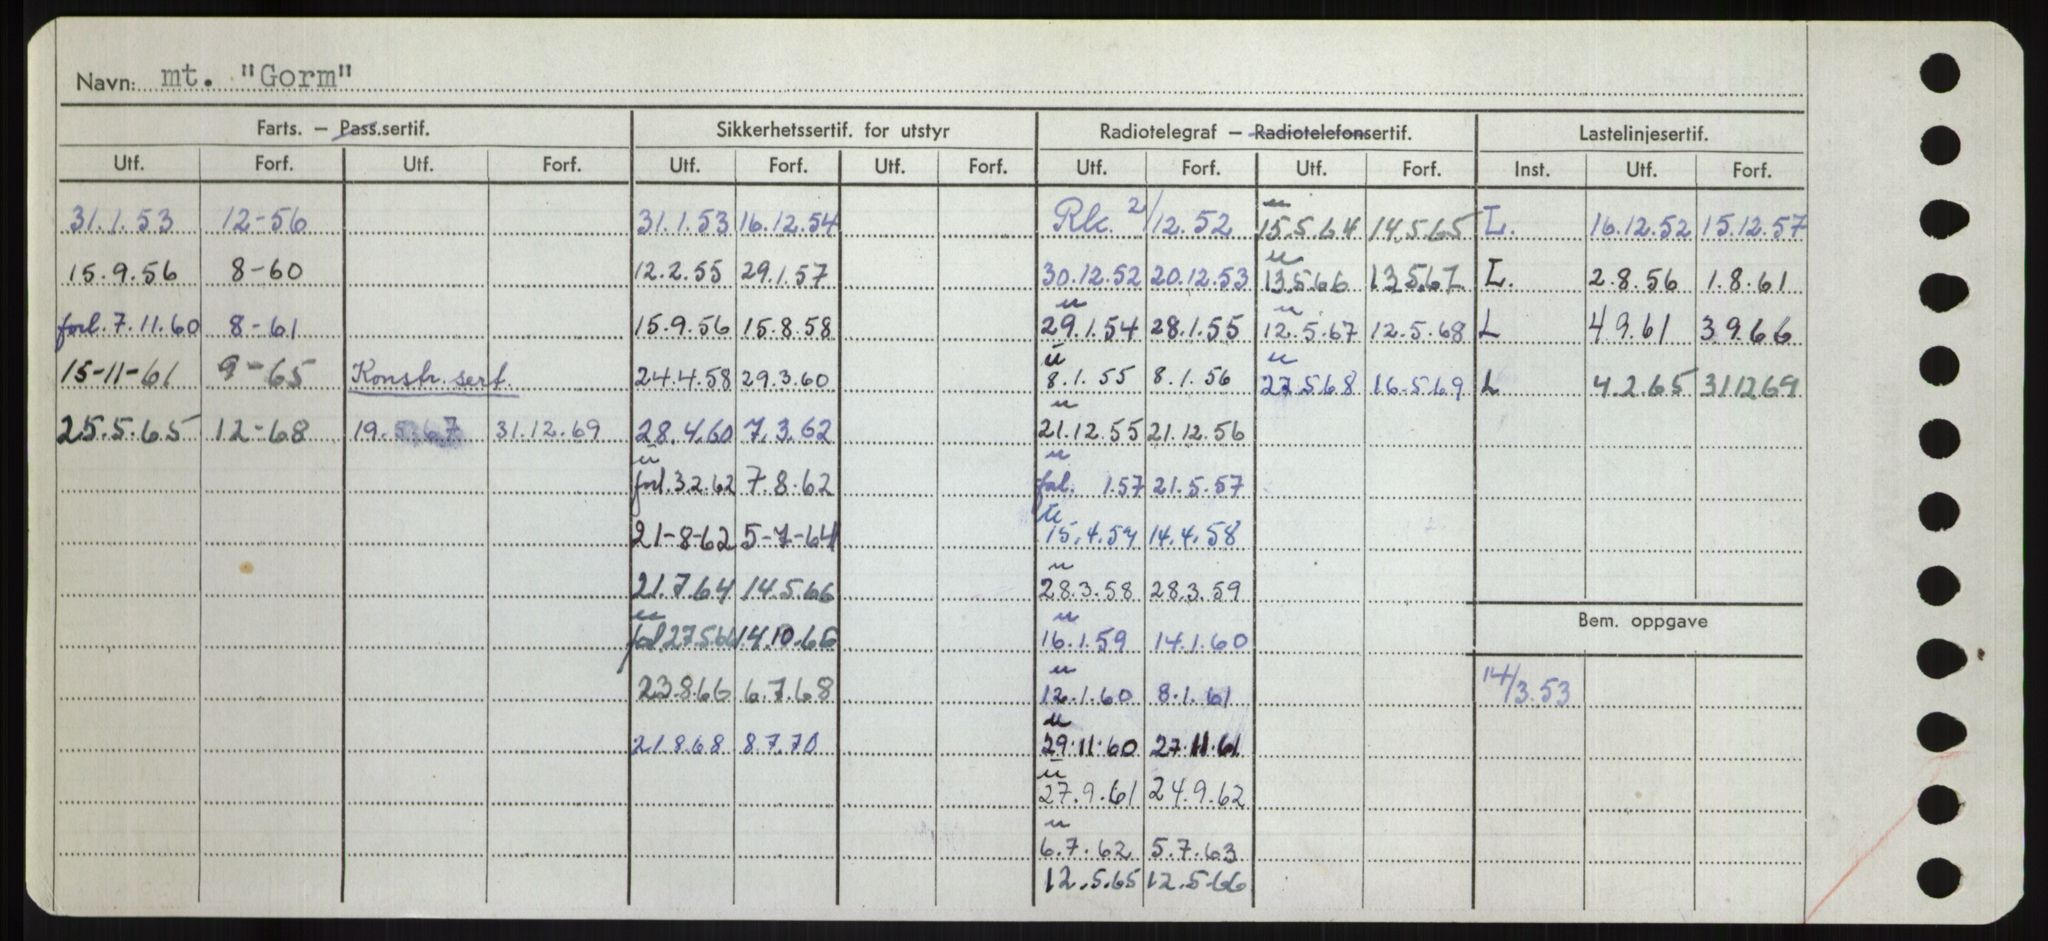 Navn: mt. "Gorm"
Farts. – Pass.sertif. Sikkerhetssertif. for utstyr Radiotelegraf – Radiotelefonsertif. Lastelinjesertif.
Utf. Forf. Utf. Forf. Utf. Forf. Utf. Forf. Utf. Forf. Utf. Forf. Inst. Utf. Forf.
31.1.53 12-56 31.1.53 16.12.54 Rk. 2/12.52 u 15.5.64 14.5.65 L. 16.12.52 15.12.57
15.9.56 8-60 12.2.55 29.1.57 30.12.52 20.12.53 u 13.5.66 13.5.67 L. 2.8.56 1.8.61
forl. 7.11.60 8-61 15.9.56 15.8.58 u 29.1.54 28.1.55 u 12.5.67 12.5.68 L 4.9.61 3.9.66
15-11-61 9-65 Konstr. sert. 24.4.58 29.3.60 u 8.1.55 8.1.56 u 27.5.68 16.5.69 L 4.2.65 31.12.69
25.5.65 12-68 19.5.67 31.12.69 28.4.60 7.3.62 u 21.12.55 21.12.56
u forl. 3.2.62 7.8.62 u forl. 1.57 21.5.57
21-8-62 5-7-64 u 15.4.57 14.4.58
21.7.64 14.5.66 u 28.3.58 28.3.59
u forl 27.5.66 14.10.66 u 16.1.59 14.1.60
23.8.66 6.7.68 u 12.1.60 8.1.61
21.8.68 8.7.70 u 29.11.60 27.11.61
u 27.9.61 24.9.62
u 6.7.62 5.7.63
12.5.65 12.5.66
Bem. oppgave
14/3.53